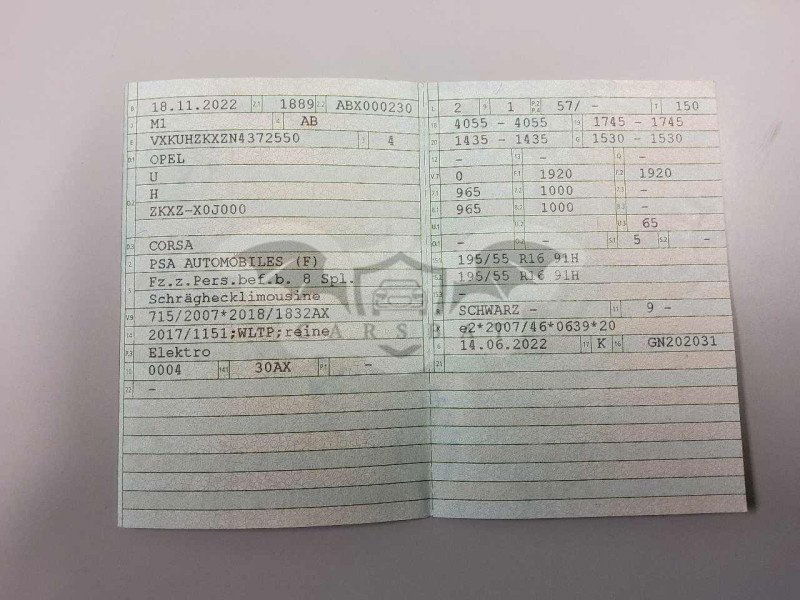 B 18.11.2022 2.1 1889 2.2 ABX000230
J M1 4 AB
E VXKUHZKXZN4372550 3 4
D.1 OPEL
U
D.2 H
ZKXZ-X0J000
D.3 CORSA
2 PSA AUTOMOBILES (F)
5 Fz.z.Pers.bef.b. 8 Spl.
Schräghecklimousine
V.9 715/2007*2018/1832AX
14 2017/1151;WLTP;reine
P.3 Elektro
10 0004 14.1 30AX P.1 -
22 -
L 2 9 1 P.2 P.4 57/ - T 150
18 4055 - 4055 19 1745 - 1745
20 1435 - 1435 G 1530 - 1530
12 - 13 - Q -
V.7 0 F.1 1920 F.2 1920
7.1 965 7.2 1000 7.3 -
8.1 965 8.2 1000 8.3 -
U.1 - U.2 - U.3 65
O.1 - O.2 - S.1 5 S.2 -
15.1 195/55 R16 91H
15.2 195/55 R16 91H
15.3 -
R SCHWARZ - 11 9 -
K e2*2007/46*0639*20
6 14.06.2022 17 K 16 GN202031
21